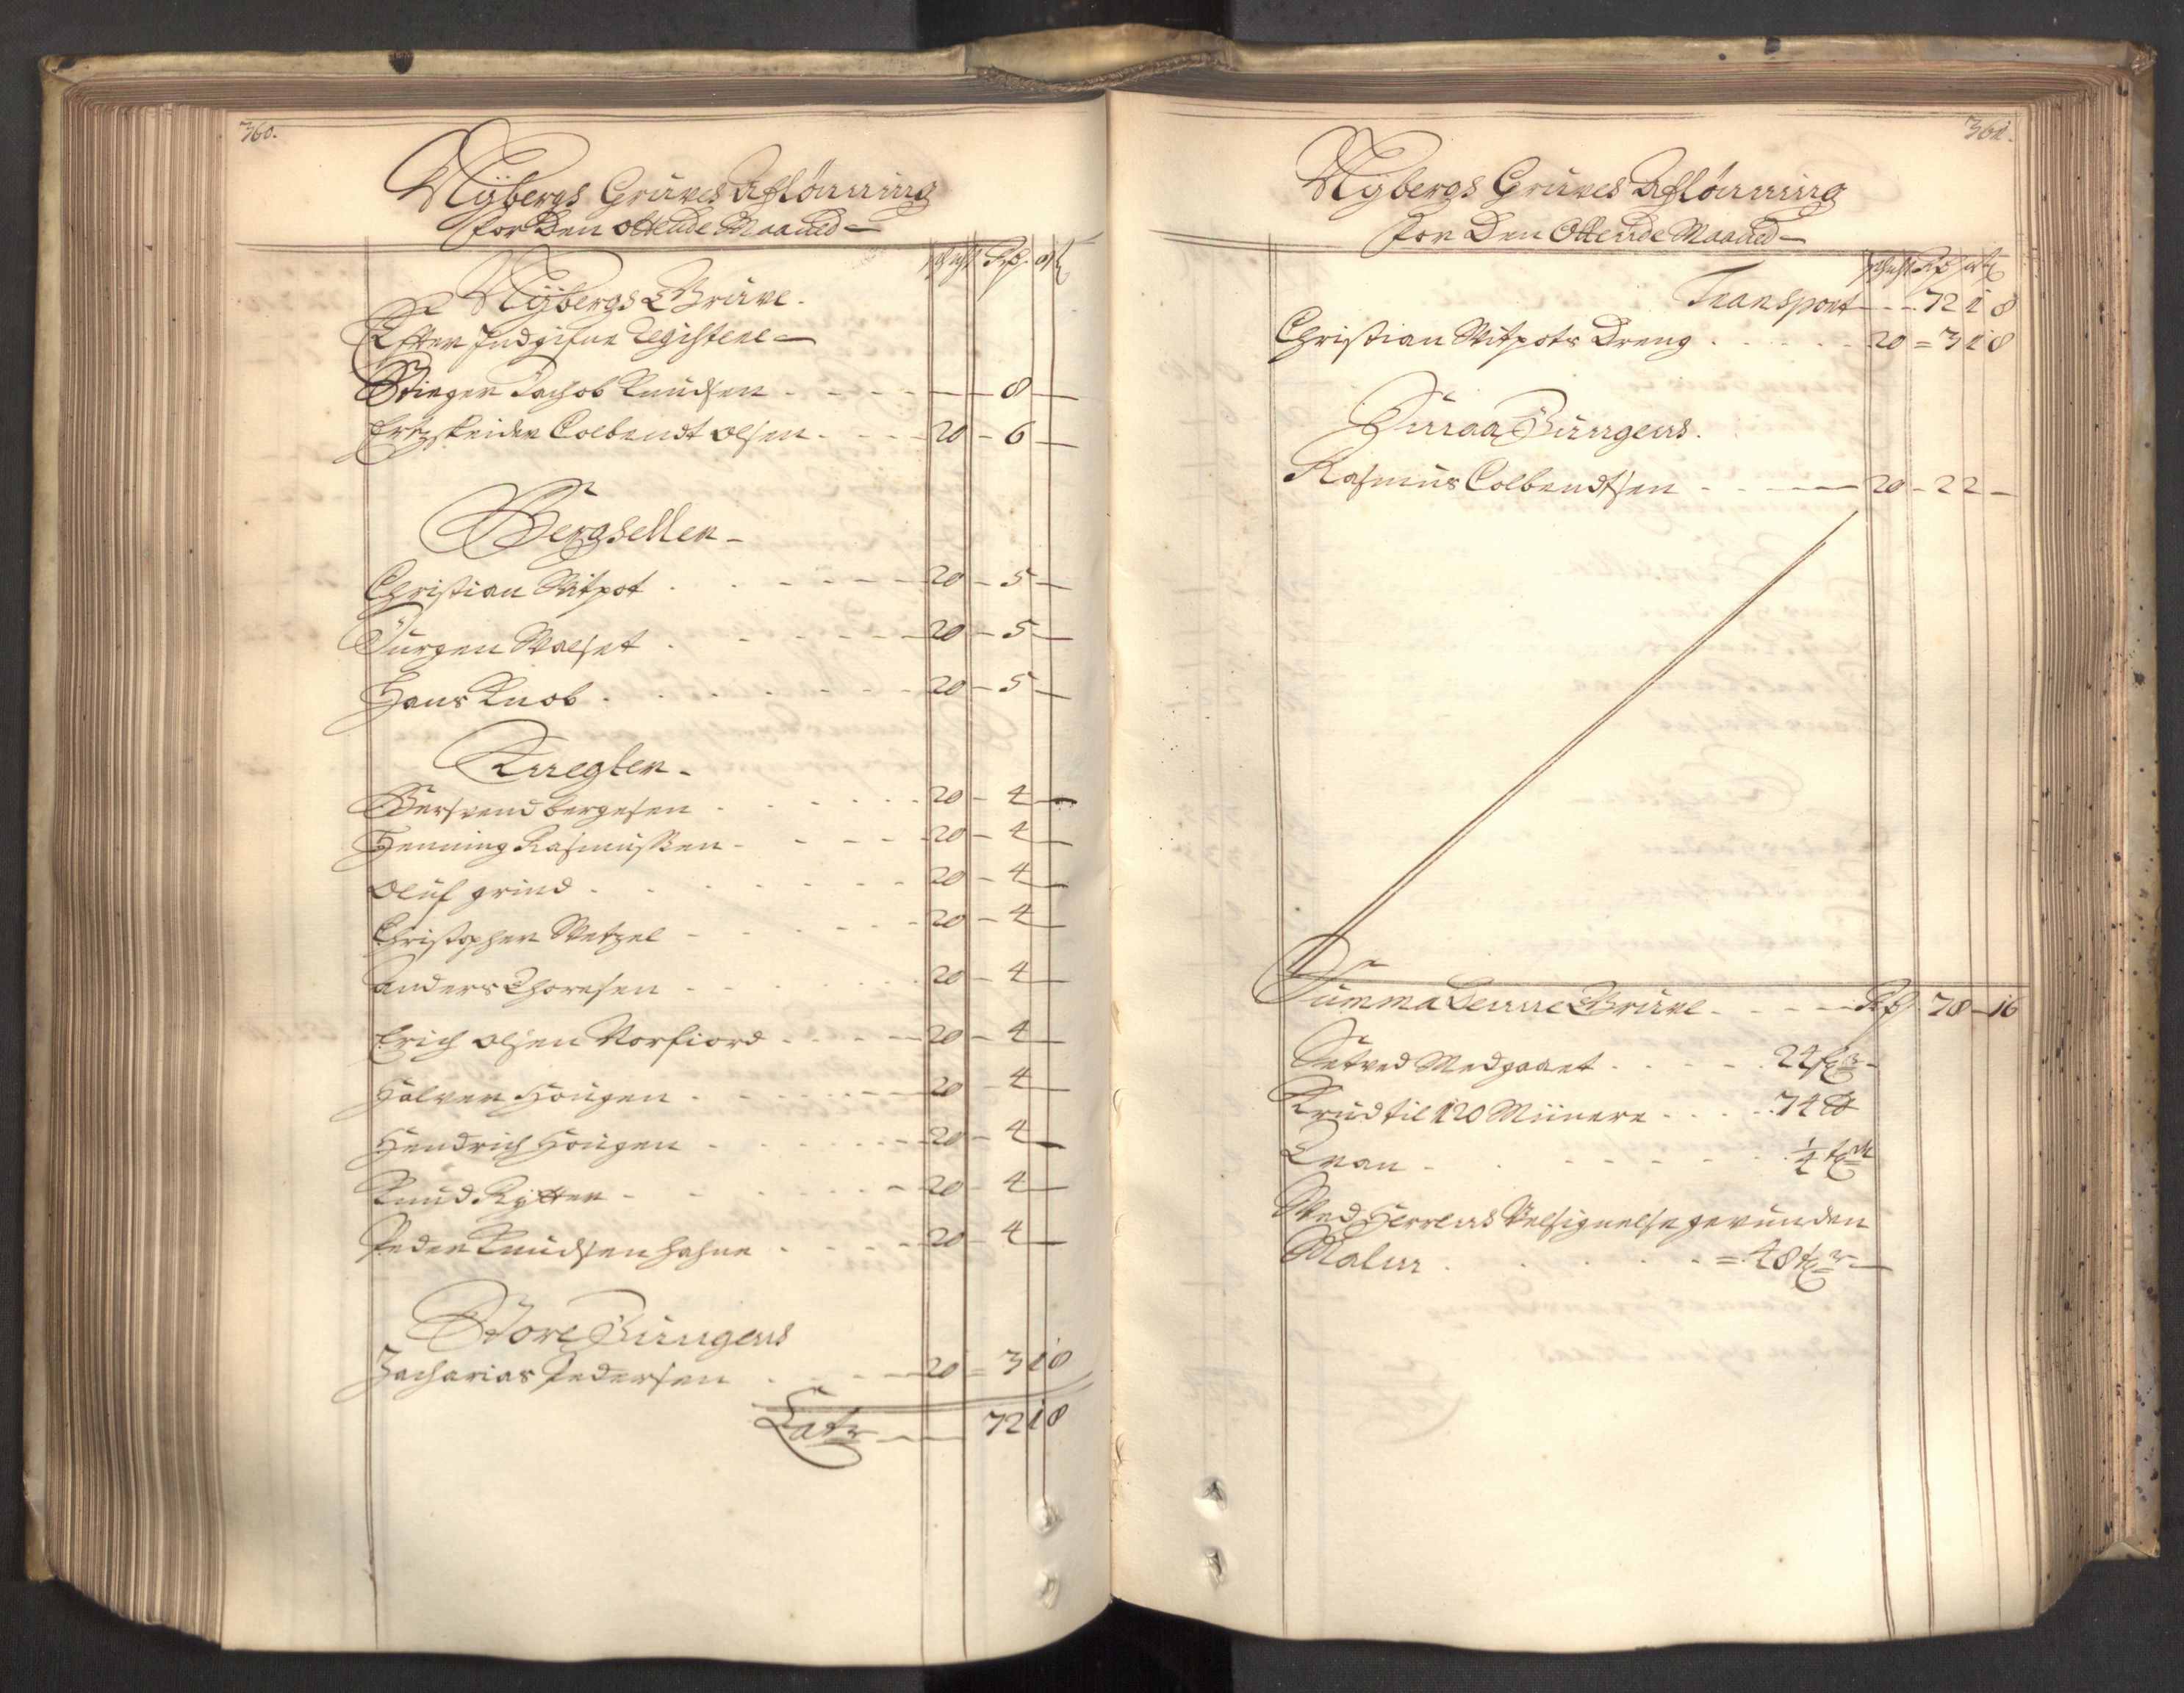 360.
Nÿbergs Gruves Aflönning
for Den ottende Maaned
Nÿbergs Gruve.
Efter Indgifne Registere
Stiger Jachob Knudsen - - - - 8 -
Ertzskeider Colbendt olsen - - - 20 - 6 -
Bergseller -
Christian Vitpot . - - - - 20 - 5 -
Jürgen Walset . - - - - 20 - 5 -
Hans Knob . . . - - - 20 - 5 -
Knegter -
Bersvend bergesen . . . . . 20 - 4 -
Henning Rasmussen - - - - 20 - 4 -
Oluf grind . . . - - - 20 - 4 -
Christopher Wetzel - - - - 20 - 4 -
Anders Thoresen - - - . . 20 - 4 -
Erich olsen Norfiord - - - - 20 - 4 -
Halver Hougen . - - - - - 20 - 4 -
Hendrich Hougen - - - - - 20 - 4 -
Knud Rytter - - - - - 20 - 4 -
Peder Knudsen Hahne . - - - 20 - 4 -
Store Jungens
Zacharias Pedersen . - - - 20 = 3 1 8
Latr 72 1 8
361.
Nÿbergs Gruves Aflönning
for Den Ottende Maaned
Transport - - - 72 1 8
Christian Vitpots Dreng . - - - 20 = 3 1 8
Smaa Jungens.
Rasmus Colbendtsen - - - - 20 - 2 2 -
Summa Denne Gruve - - - - Rd 78 - 16
Setved Medgaaet . . - - . 24
Krud til 120 Miinere - - - . 74 ℔
Tran - . - - - - - 1/4
Ved Herrens Velsignelse gevunden
Malm . . . . . - = 48